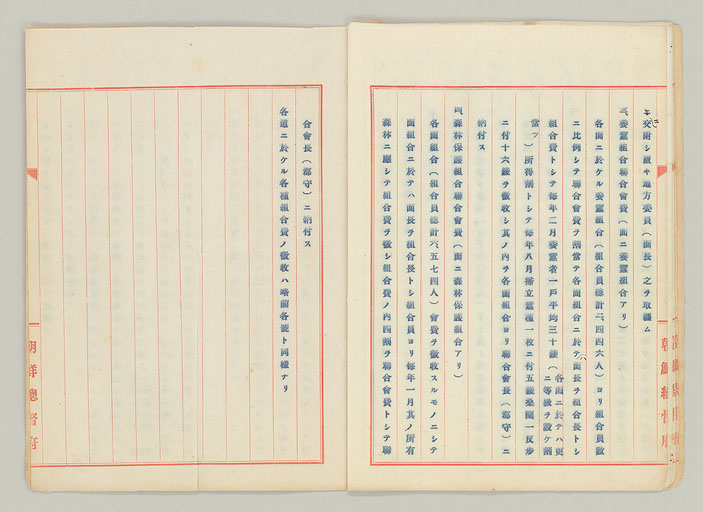 ニ交附シ置キ地方委員(面長)之ヲ取纒ム
二、養蠶組合聯合會費(面ニ養蠶組合アリ)
各面ニ於ケル養蠶組合(組合員總計二、四四六人)ヨリ組合員數
ニ比例シテ聯合會費ヲ割當テ各面組合ニ於テハ面長ヲ組合長トシ
組合費トシテ每年二月養蠶者一戶平均三十錢(各面ニ於テハ更ニ等級ヲ設ケ割
當ツ)所得割トシテ每年八月掃立蠶種一枚ニ付五錢桑園一反步
ニ付十六錢ヲ徵收シ其ノ內ヲ各面組合ヨリ聯合會長(郡守)ニ
納付ス
四、森林保護組合聯合會費(面ニ森林保護組合アリ)
各面組合(組合員總計六、五七四人)會費ヲ徵收スルモノニシテ
面組合ニ於テハ面長ヲ組合長トシ組合員ヨリ每年一月其ノ所有
森林ニ應シテ組合費ヲ徵シ組合費ノ內四割ヲ聯合會費トシテ聯
朝鮮總督府
合會長(郡守)ニ納付ス
各道ニ於ケル各種組合費ノ徵收ハ略前各號ト同樣ナリ
朝鮮總督府